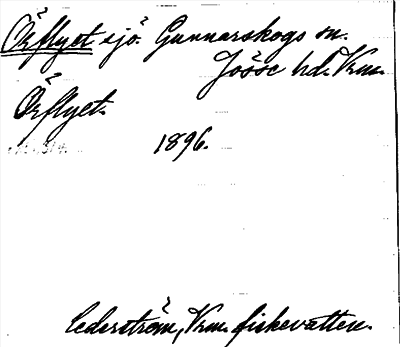 Örflyet sjö. Gunnarskogs sn.
Jösse hd. Vrm.
Örflyet.
1896.
Cederström, Vrm. fiskevatten.